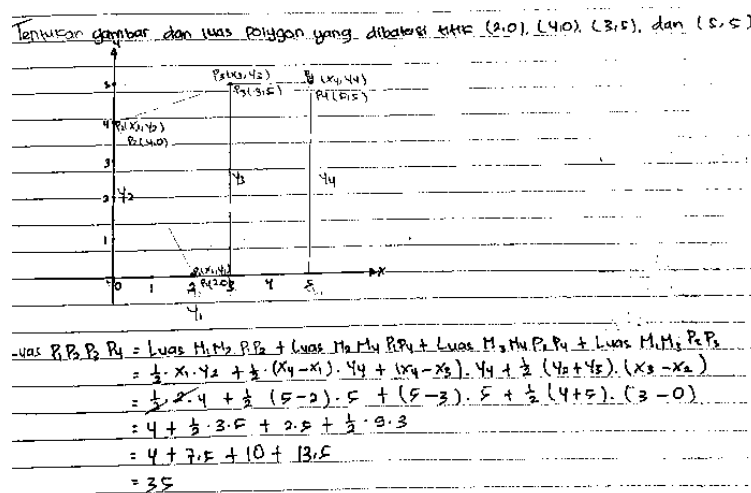 Tentukan gambar dan luas polygon yang dibatasi titik (2,0), (4,0), (3,5), dan (5,5)
y
5
P3(X3,Y3)
P3(3,5)
P4 (X4,Y4)
P4(5,5)
4
P2(X2,Y2)
P2(4,0)
3
Y3
Y4
2
Y2
1
P1(X1,Y1)
P1(2,0)
0 1 2 3 4 5
X
Y1
Luas P1 P2 P3 P4 = Luas M1M2 P1P2 + Luas M2 M4 P1P4 + Luas M3 M4 P3 P4 + Luas M1M3 P2 P3
= 1/2 . X1 . Y2 + 1/2 . (X4-X1) . Y4 + (X4-X3) . Y4 + 1/2 (Y2+Y3) . (X3-X2)
= 1/2 . 2 . 4 + 1/2 (5-2) . 5 + (5-3) . 5 + 1/2 (4+5) . (3-0)
= 4 + 1/2 . 3.5 + 2.5 + 1/2 . 9.3
= 4 + 7,5 + 10 + 13,5
= 35